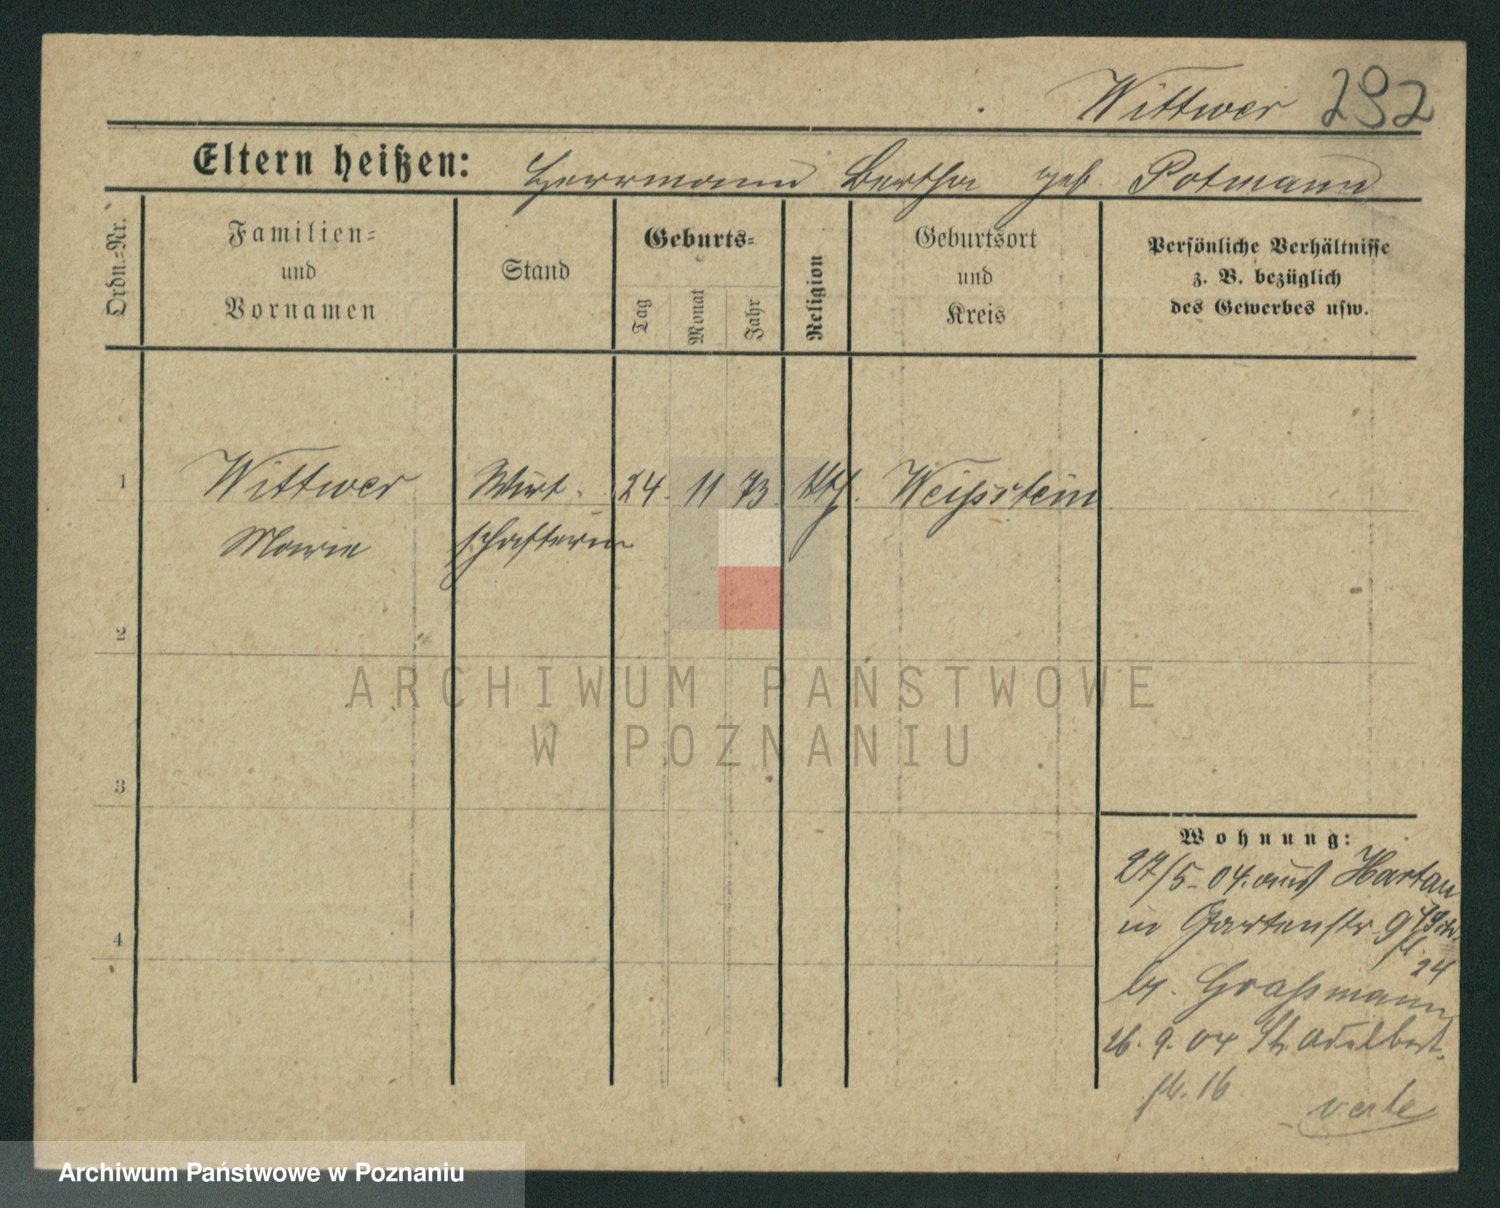 Wittwer 292
Eltern heißen: Herrmann Bertha geb. Potmann
Ordn.-Nr.
Familien-
und
Vornamen
Stand
Geburts-
Tag
Monat
Jahr
Religion
Geburtsort
und
Kreis
Persönliche Verhältnisse
z. B. bezüglich
des Gewerbes usw.
1 Wittwer Wirt- 24. 11 73. kth. Weißstein
Marie schafterin
2
ARCHIWUM PAŃSTWOWE
W POZNANIU
3
Wohnung:
27/5-04. aus Hartau
in Gartenstr. 9
24
b. Graßmann
26. 9. 04 St. Adalbert-
str. 16.
4
Archiwum Państwowe w Poznaniu